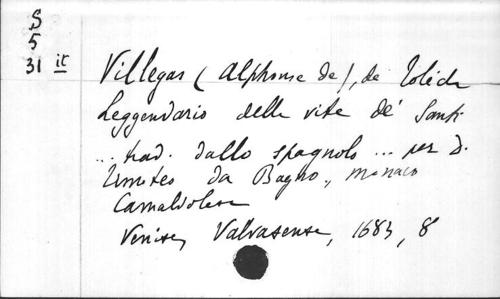 S
5
31 it
Villegas (Alphonse de), de Tolède
Leggendario delle vite de' Santi
... trad. dallo spagnolo ... per D.
Timoteo da Bagno, monaco
Camaldolese
Venise, Valvasense, 1683, 8